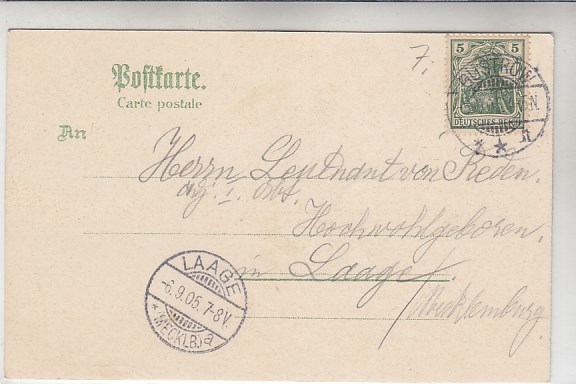 7/
5 5
GÜSTROW
DEUTSCHES REICH
Postkarte.
Carte postale
An
Herrn Leutnant von Reden.
Hochwohlgeboren.
in Laage
Mecklenburg
LAAGE
-6.9.05.7-8V.
*(MECKLB.)a